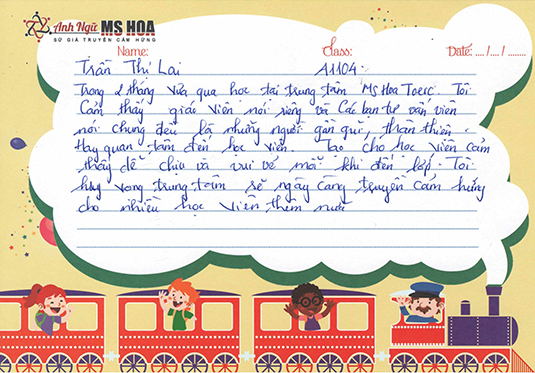 Anh Ngữ MS HOA
SỨ GIẢ TRUYỀN CẢM HỨNG
Name: Class: Date: ..../..../........
Trần Thị Lai A1104
Trong 2 tháng vừa qua học tại trung tâm Ms Hoa Toeic. Tôi
Cảm thấy giáo viên nói riêng và Các bạn tư vấn viên
nói chung đều là những người gần gũi, thân thiện.
Hay quan tâm đến học viên. Tạo cho học viên cảm
thấy dễ chịu và vui vẻ mỗi khi đến lớp. Tôi
hy vọng trung tâm sẽ ngày càng truyền cảm hứng
cho nhiều học viên thêm nữa